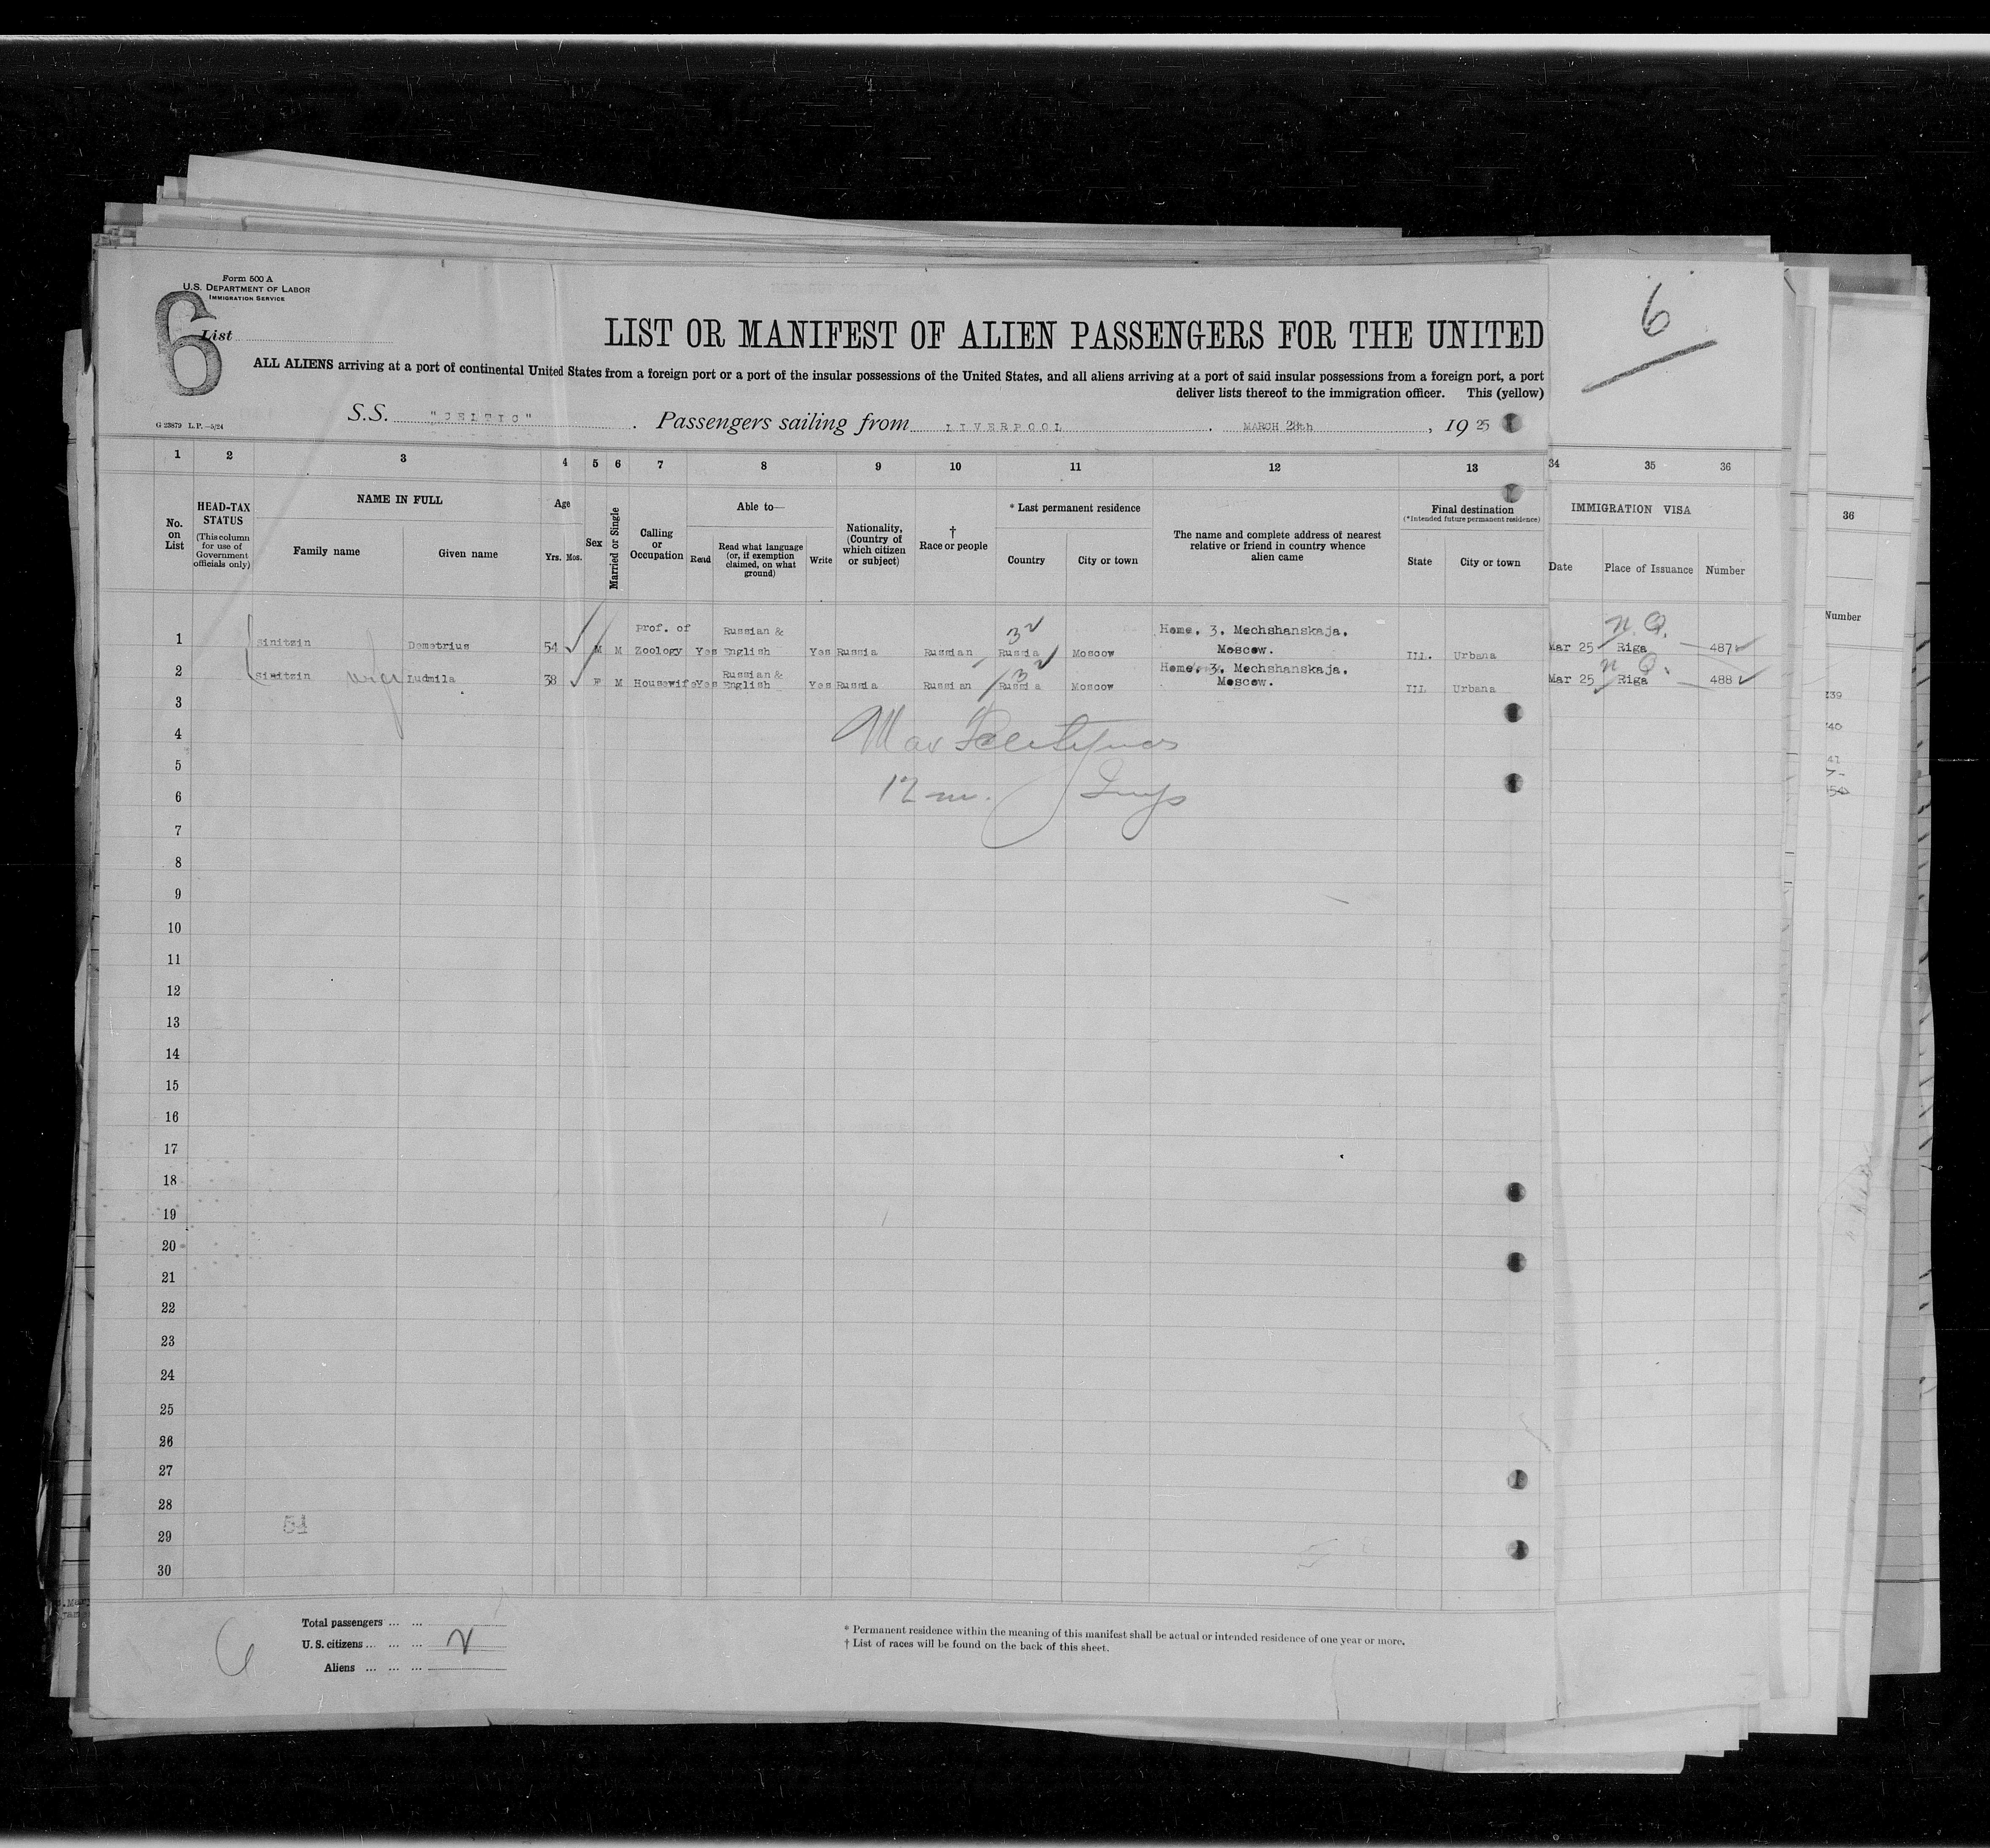 Form 500 A
U.S. DEPARTMENT OF LABOR
IMMIGRATION SERVICE
6
List
6
LIST OR MANIFEST OF ALIEN PASSENGERS FOR THE UNITED
ALL ALIENS arriving at a port of continental United States from a foreign port or a port of the insular possessions of the United States, and all aliens arriving at a port of said insular possessions from a foreign port, a port
deliver lists thereof to the immigration officer. This (yellow)
S.S. "CELTIC" . Passengers sailing from LIVERPOOL . MARCH 28th , 19 25
G 23879 L.P.—5/24
1 2 3 4 5 6 7 8 9 10 11 12 13 34 35 36
No. on List
HEAD-TAX STATUS
(This column for use of Government officials only)
NAME IN FULL
Family name
Given name
Age
Yrs. Mos.
Sex
Married or Single
Calling or Occupation
Able to—
Read
Read what language (or, if exemption claimed, on what ground)
Write
Nationality, (Country of which citizen or subject)
† Race or people
* Last permanent residence
Country
City or town
The name and complete address of nearest relative or friend in country whence alien came
Final destination
(*Intended future permanent residence)
State
City or town
IMMIGRATION VISA
Date
Place of Issuance
Number
36
Number
1 Sinitzin Demetrius 54 M M Prof. of Zoology Yes Russian & English Yes Russia Russian Russia Moscow Home. 3. Mechshanskaja. Moscow. ILL. Urbana Mar 25 Riga 487
N.Q.
2 Sinitzin wife Ludmila 38 F M Housewife Yes Russian & English Yes Russia Russian Russia Moscow Home. 3. Mechshanskaja. Moscow. ILL Urbana Mar 25 Riga 488
N.Q.
3
4
5
6
12 m.
7
8
9
10
11
12
13
14
15
16
17
18
19
20
21
22
23
24
25
26
27
28
29
30
39
40
41
6
Total passengers ... ...
U. S. citizens ... ... ... 2
Aliens ... ... ...
* Permanent residence within the meaning of this manifest shall be actual or intended residence of one year or more.
† List of races will be found on the back of this sheet.